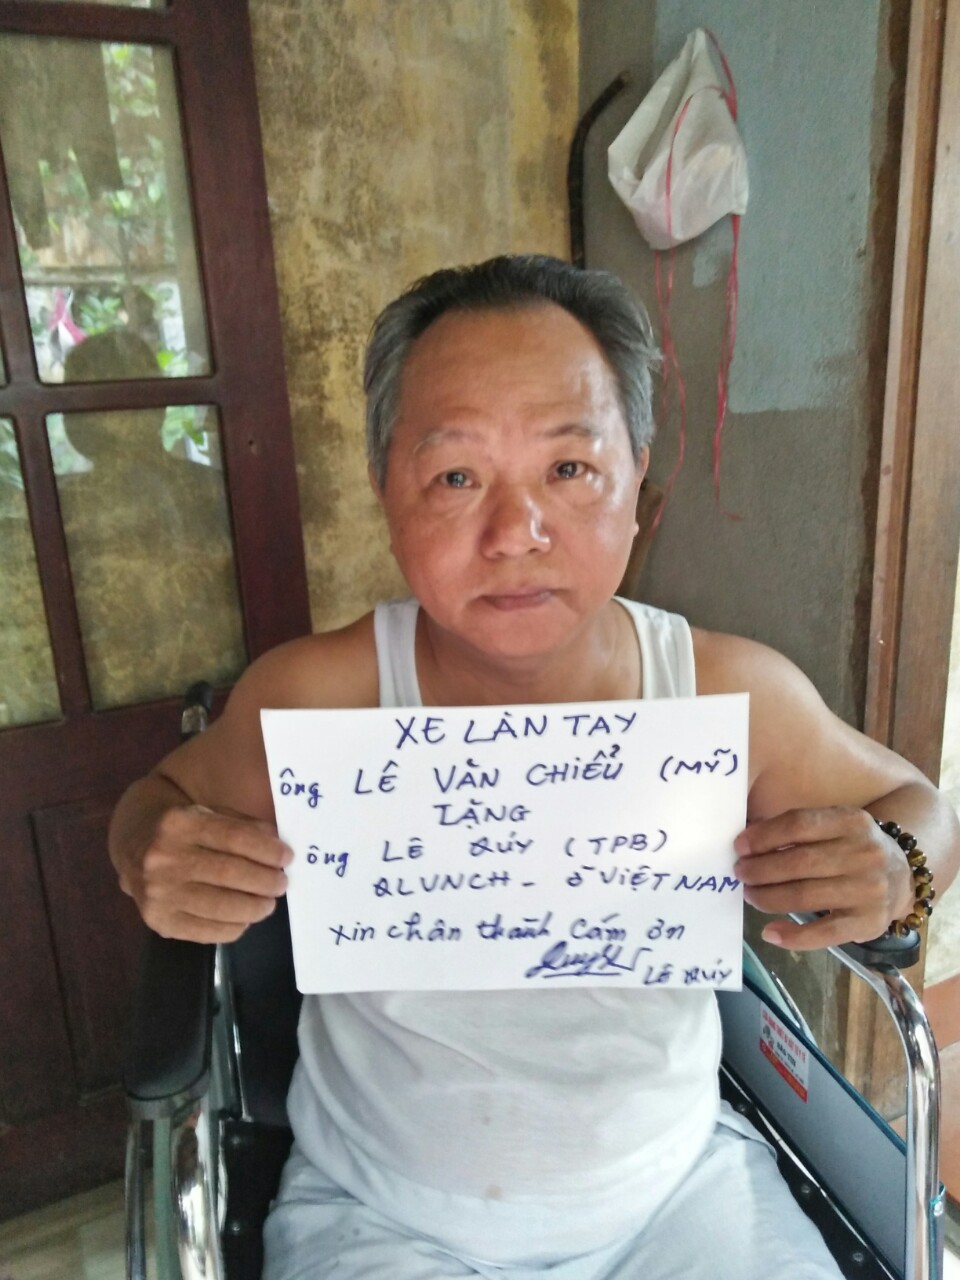 XE LĂN TAY
ông LÊ VĂN CHIỂU (MỸ)
TẶNG
ông LÊ QUÝ (TPB)
QLVNCH - Ở VIỆT NAM
Xin chân thành Cám ơn
LÊ QUÝ